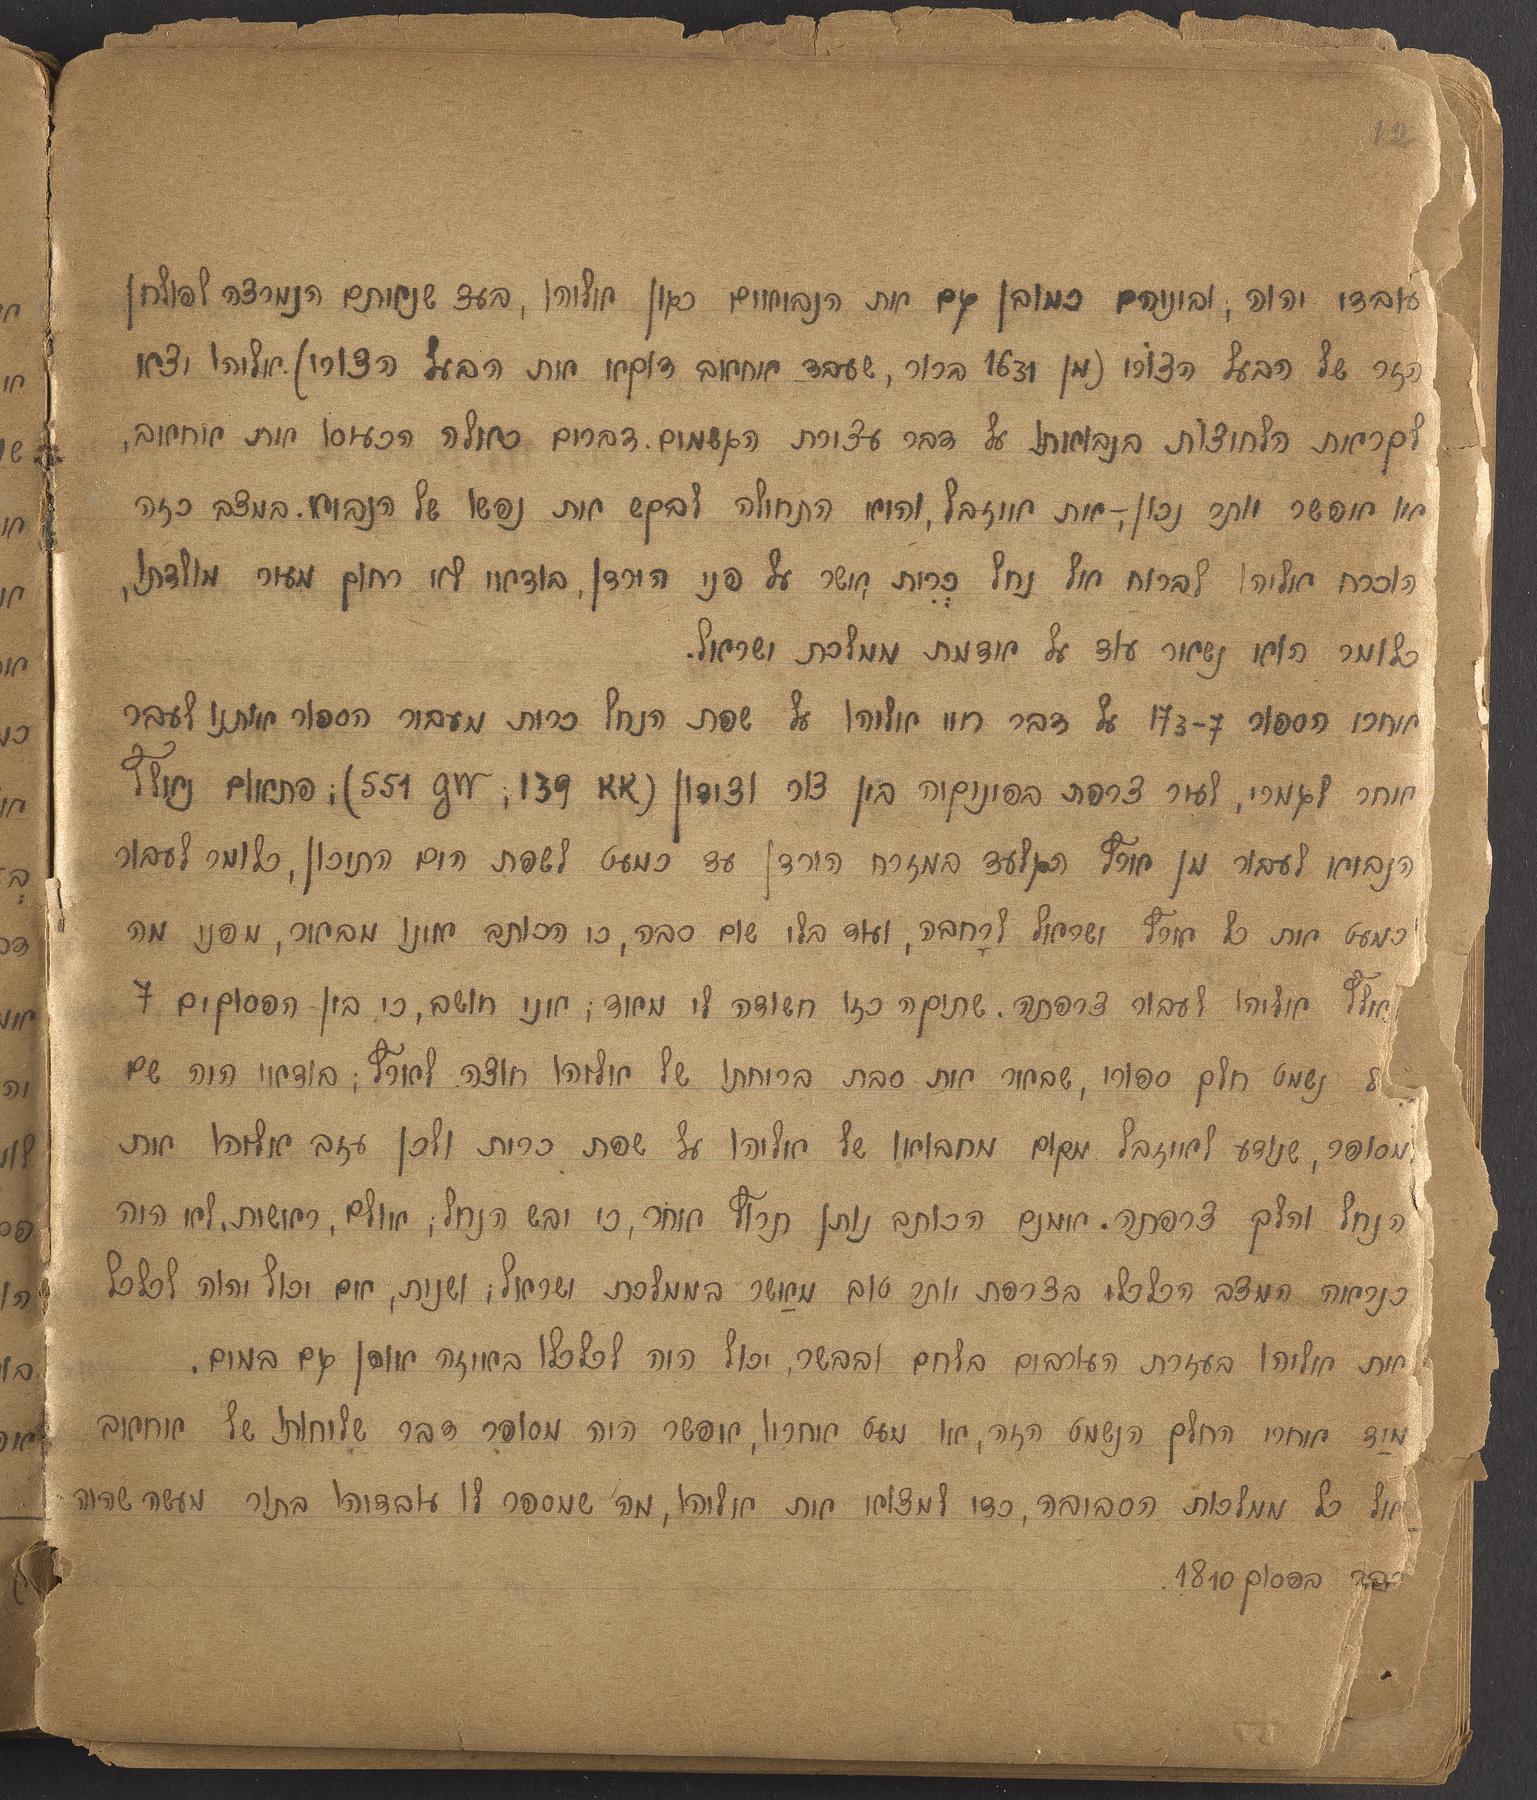 12
עובדי יהוה, וביניהם כמובן גם את הנביאים כגון אליהו, בעד שנאתם הנמרצה לפולחן
הזר של הבעל הצורי (מן 1631 ברור, שעבד אחאב דוקא את הבעל הצורי). אליהו יצא
לקראת הלחוצות בנבואתו על דבר עצירת הגשמים. דברים כאלה הכעיסו את אחאב,
או אפשר יותר נכון, – את איזבל, והיא התחילה לבקש את נפשו של הנביא. במצב כזה
הוכרח אליהו לברוח אל נחל כְּרִית אשר על פני הירדן, בודאי לא רחוק מעיר מולדתו,
כלומר הוא נשאר עוד על אדמת ממלכת ישראל.
אחרי הספור 173-7 על דבר חיי אליהו על שפת הנחל כרית מעביר הספור אותנו לעבר
אחר לגמרי, לעיר צרפת בפיניקיה בין צור וצידון (KK 139; GW 551); פתאום נאלץ
הנביא לעבור מן ארץ הגלעד במזרח הירדן עד כמעט לשפת הים התיכון, כלומר לעבור
כמעט את כל ארץ ישראל לרָחבה, ועוד בלי שום סבה, כי הכותב אינו מבאר, מפני מה
נאלץ אליהו לעבור צרפתה. שתיקה כזו חשודה לי מאוד; אני חושב, כי בין הפסוקים 7
נשמט חלק ספורי, שבאר את סבת בריחתו של אליהו חוצה לארץ; בודאי היה שם
מסופר, שנודע לאיזבל מקום מחבואו של אליהו על שפת כרית ולכן עזב אליהו את
הנחל והלך צרפתה. אמנם הכותב נותן תרוץ אחר, כי יבש הנחל; אולם, ראשית, לא היה
כנראה המצב הכלכלי בצרפת יותר טוב מאַשר בממלכת ישראל; ושנית, אם יכול יהוה לכלכל
את אליהו בעזרת העורבים בלחם ובבשר, יכול היה לכלכלו באיזה אופן גם במים.
מיַד אחרי החלק הנשמט הזה, או מעט אחריו, אפשר היה מסופר דבר שליחותו של אחאב
אל כל ממלכות הסביבה, כדי למצוא את אליהו, מה שמספר לו עובדיהו בתור מעשה שהיה
כבר בפסוק 1810.